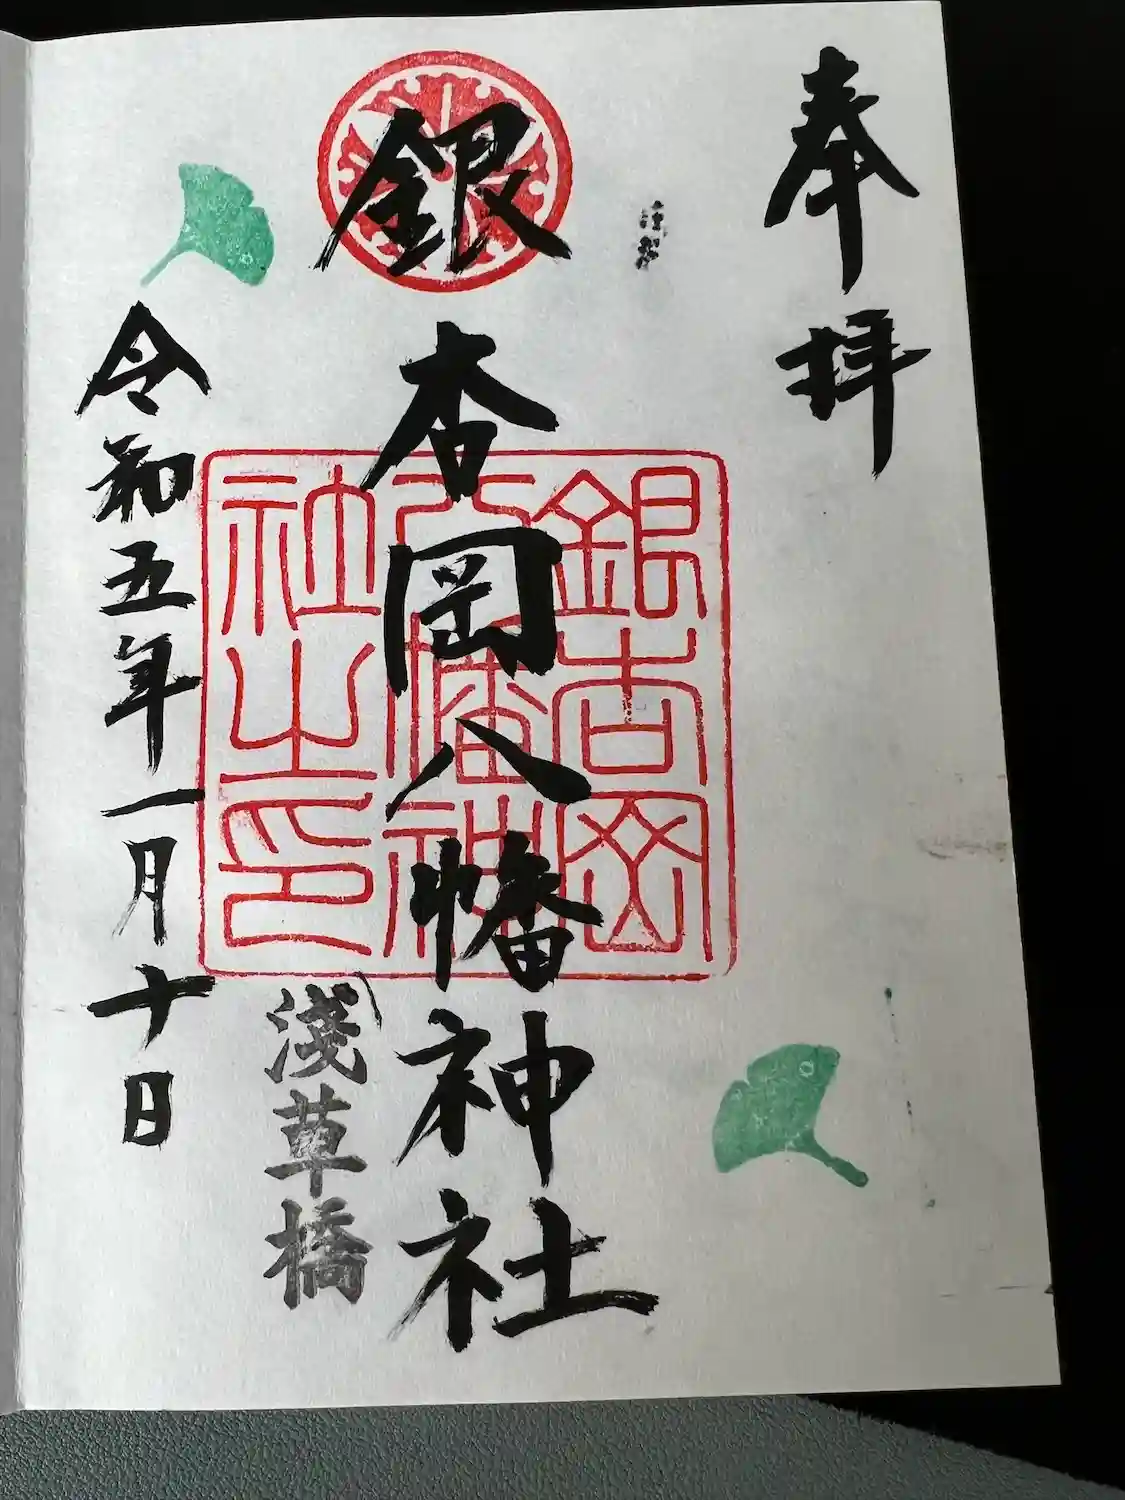 奉拝
銀杏岡八幡神社
銀杏岡
八幡神
社之印
淺草橋
令和五年一月十日